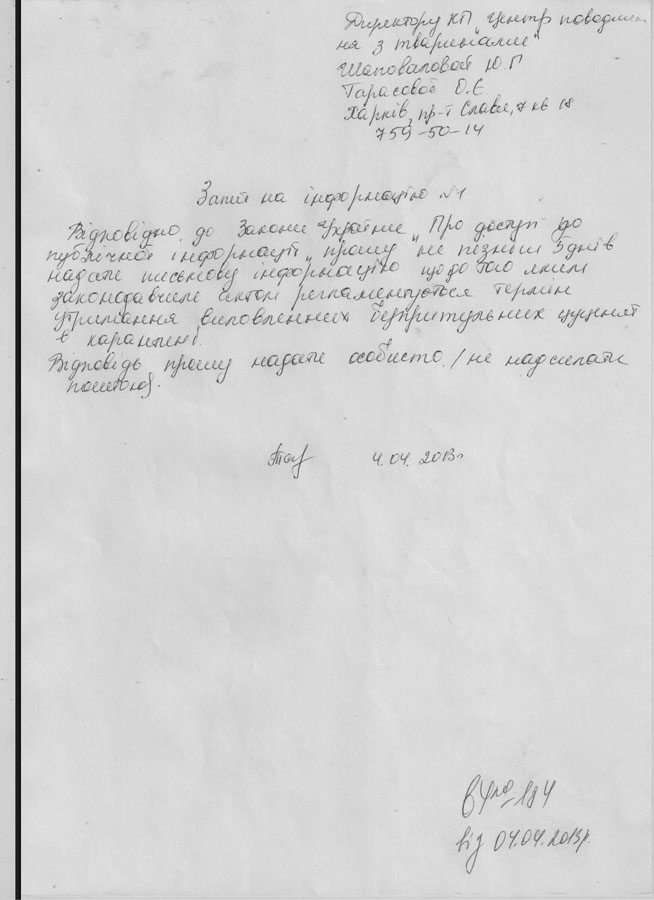 Директору КП „Центр поводжен
ня з тваринами"
Шаповаловой Ю.Г
Тарасовой О.Є
Харків, пр-т Слави, 7 кв 18
759-50-14
Запит на інформацію №1
Відповідно до Закони України „Про доступ до
публічної інформації" прошу не пізніш 5 днів
надати письмову інформацію щодо того яким
законодавчим актом регламентується термін
утримання виловленних безпритульних цуценят
в карантині.
Відповідь прошу надати особисто /не надсилати
поштою/.
4.04. 2013г
від 04.04.2013р.